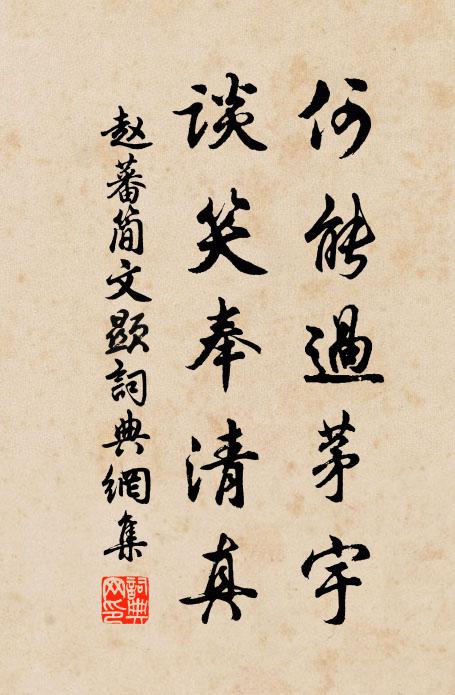 何能過茅宇
談笑奉清真
赵蕃简文顯詞典網集
詞典網印